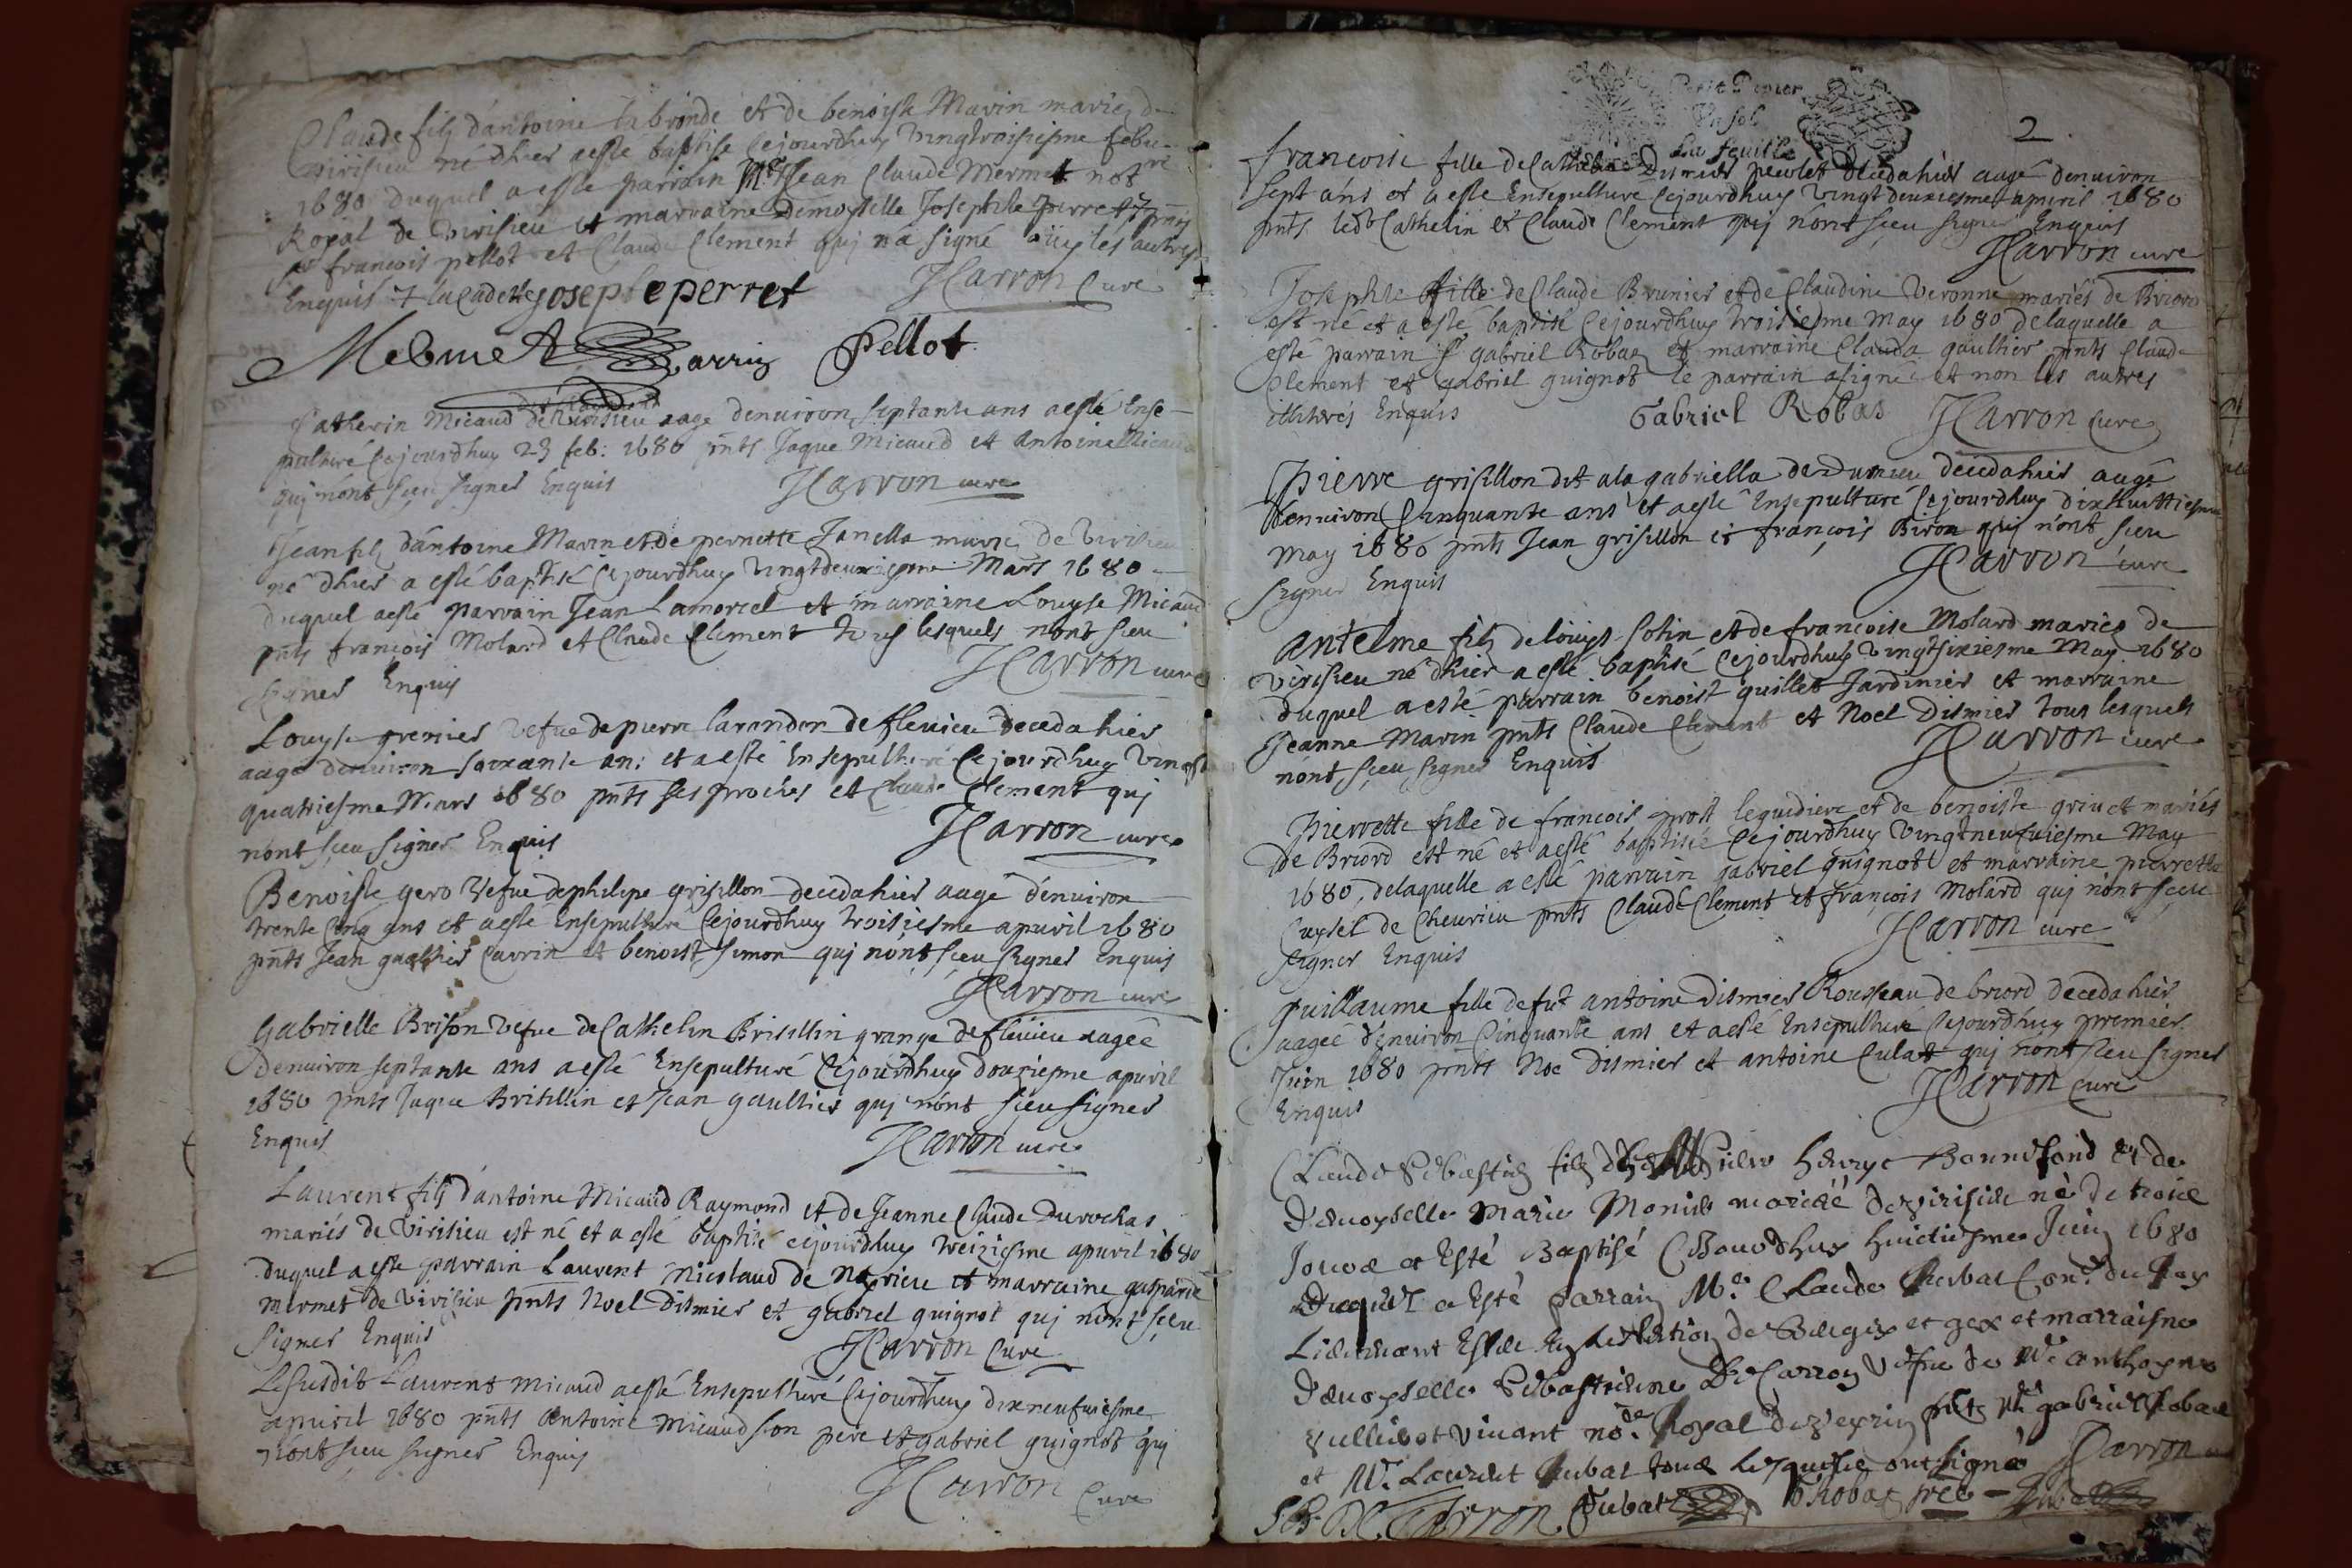 Claude filz d'antoine labronde et de benoiste Marin mariez de
Virisieu né dhier a esté baptisé cejourdhuy vingtroisiesme febu-
1680 duquel a esté parrain Mre Jean Claude Mermet notre
Royal de Virisieu et marraine Demoyselle Josephte Perret pnts
sr françois pellot et Claude Clement quj n'a signé ouy les autres
Enquis la Cadette josephe perret JCarron Curé
Mermet parrin Pellot
Catherin Micaud de Virisieu aagé denuiron septante ans a esté Ense-
pulturé cejourdhuy 23 feb: 1680 pnts Jaque Micaud et Antoine Micaud
quj n'ont sceu signer Enquis JCarron curé
Jean filz d'antoine Marin et de pernette Janella mariez de Virisieu
né dhier a esté baptisé cejourdhuy vingtdeuxiesme Mars 1680
duquel a esté parrain Jean Lamorcel et marraine Louyse Micaud
pnts françois Molard et Claude Clement tous lesquels n'ont sceu
signer Enquis JCarron curé
Louyse grenier vefue de pierre larandon de fleuieu decedahier
aagé denuiron soixante ans et a esté Ensepulturé cejourdhuy vingt
quatriesme Mars 1680 pnts ses proches et Claude Clement quj
n'ont sceu signer Enquis JCarron curé
Benoiste gero vefue de philipe grisillon decedahier aagé d'enuiron
trente cinq ans et a esté Ensepulturé cejourdhuy troisiesme apuril 1680
pnts Jean gaultier Caurin et benoist simon quj n'ont sceu signer Enquis
JCarron curé
Gabrielle Brison vefue de Cathelin Brisillin grange de fleuieu aagée
denuiron septante ans a esté Ensepulturé cejourdhuy douziesme apuril
1680 pnts Jaque Brisillin et Jean gaultier quj n'ont sceu signer
Enquis JCarron curé
Laurent filz d'antoine Micaud Raymond et de Jeanne Claude Durochas
mariés de Virisieu est né et a esté baptisé cejourdhuy treiziesme apuril 1680
duquel a esté parrain Laurent Nicolaud de Marieu et marraine gasparde
mermet de Virisieu pnts Noel Dismier et gabriel guignot quj n'ont sceu
signer Enquis JCarron Curé
Lesusdit Laurent Micaud a esté Ensepulturé cejourdhuy dixneufuiesme
apuril 1680 pnts Antoine Micaud son pere et gabriel guignot quj
n'ont sceu signer Enquis JCarron Curé
Petit Papier
Un sol
La feuille
2
françoise fille de Cathelin Dismier decedahier aagé denuiron
sept ans et a esté Ensepulturé cejourdhuy vingtdeuxiesme apuril 1680
pnts ledt Cathelin et Claude Clement quj n'ont sceu signer Enquis
JCarron curé
Josephte fille de Claude Brunier et de Claudine Veronne mariés de Briord
est né et a esté baptisé cejourdhuy troisiesme May 1680 delaquelle a
esté parrain Sr gabriel Robas et marraine Clauda gaultier pnts Claude
Clement et gabriel guignot le parrain a signé et non les autres
illiterés Enquis Gabriel Robas JCarron Curé
Pierre grisillon dit ala gabriella de Dumieu decedahier aagé
denuiron Cinquante ans et a esté Ensepulturé cejourdhuy dixhuittiesme
may 1680 pnts Jean grisillon et françois Biron quj n'ont sceu
signer Enquis JCarron curé
Antelme filz de louys Solin et de francoise Molard mariés de
Virisieu né dhier a esté baptisé cejourdhuy vingtsixiesme May 1680
duquel a esté parrain benoist guillet Jardinier et marraine
Jeanne Marin pnts Claude Clement et Noel Dismier tous lesquels
n'ont sceu signer Enquis JCarron curé
Pierrette fille de francois prost lequidiere et de benoiste griuet mariés
de Briord est né et a esté baptisée cejourdhuy vingtneufuiesme May
1680, delaquelle a esté parrain gabriel guignot et marraine pierrette
Cuysel de Cheurieu pnts Claude Clement et françois Molard quj n'ont sceu
signer Enquis JCarron curé
Guillaume fille de fut antoine Dismier Rousseau de briord decedahier
aagée d'enuiron Cinquante ans et a esté Ensepulturé cejourdhuy premier
Juin 1680 pnts Noe Dismier et antoine Culat quj n'ont sceu signer
Enquis JCarron Curé
Claude Sebastien filz de Sieur Henrye Bonnefond et de
Damoyselle Marie Monier mariéé de Virisieu né de troiz
Jourz a Esté Baptisé Ceiourdhuy huictiesme Juin 1680
Duquel a Esté parrain Mr. Claude Rubat Conr du Roy
Lieutenant En Lestection de Beugey et gex et marraisne
Damoyselle Sebastienne De Carron vefue de Mr anthoyne
vulliot viuant nore Royal pnts Mr gabriel Robas
et Mr. Laurent Rubat touz lesquelz ont signé JCarron
SB. DC. Carron Rubat G Robas Rubat